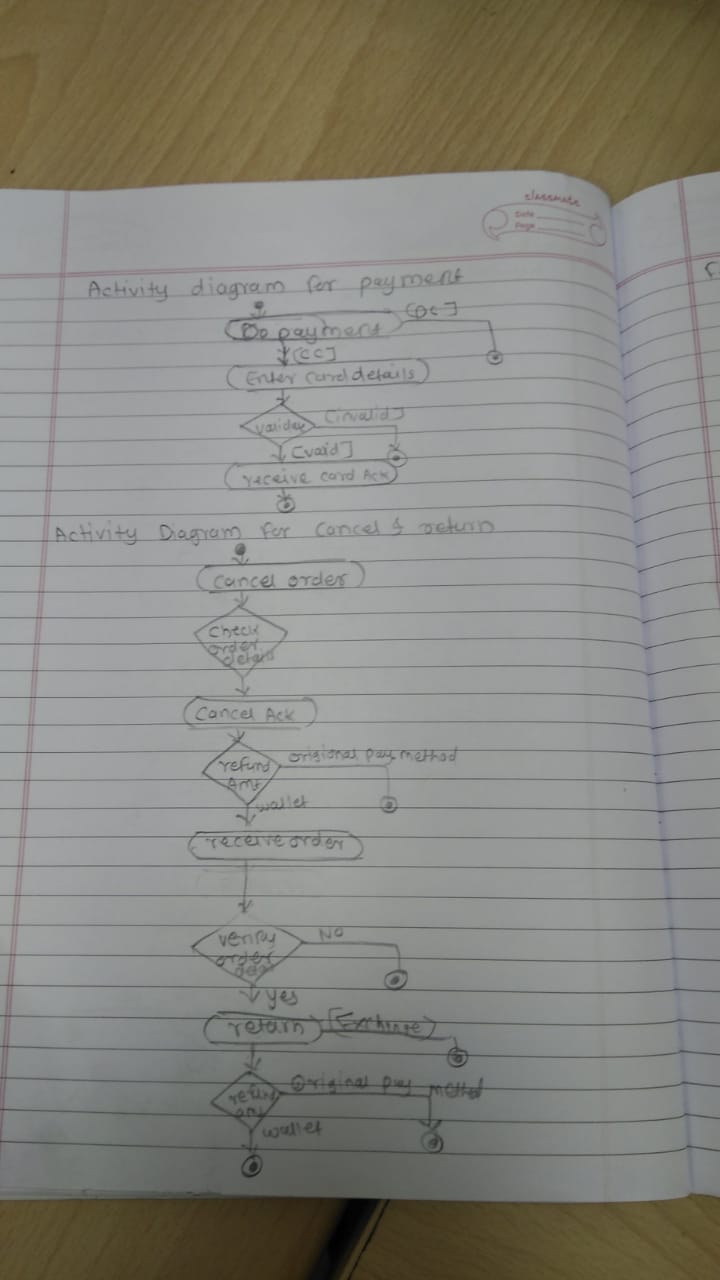 classmate
Date
Page
Activity diagram for payment
Do payment
[DC]
[CC]
Enter card details
validate
[invalid]
[vaid]
receive card Ack
Activity Diagram for cancel & return
cancel order
check
order
details
cancel Ack
refund
Amt
origional pay method
wallet
receive order
verify
order
NO
yes
return
[Exchinge]
refund
amt
Original pay method
wallet